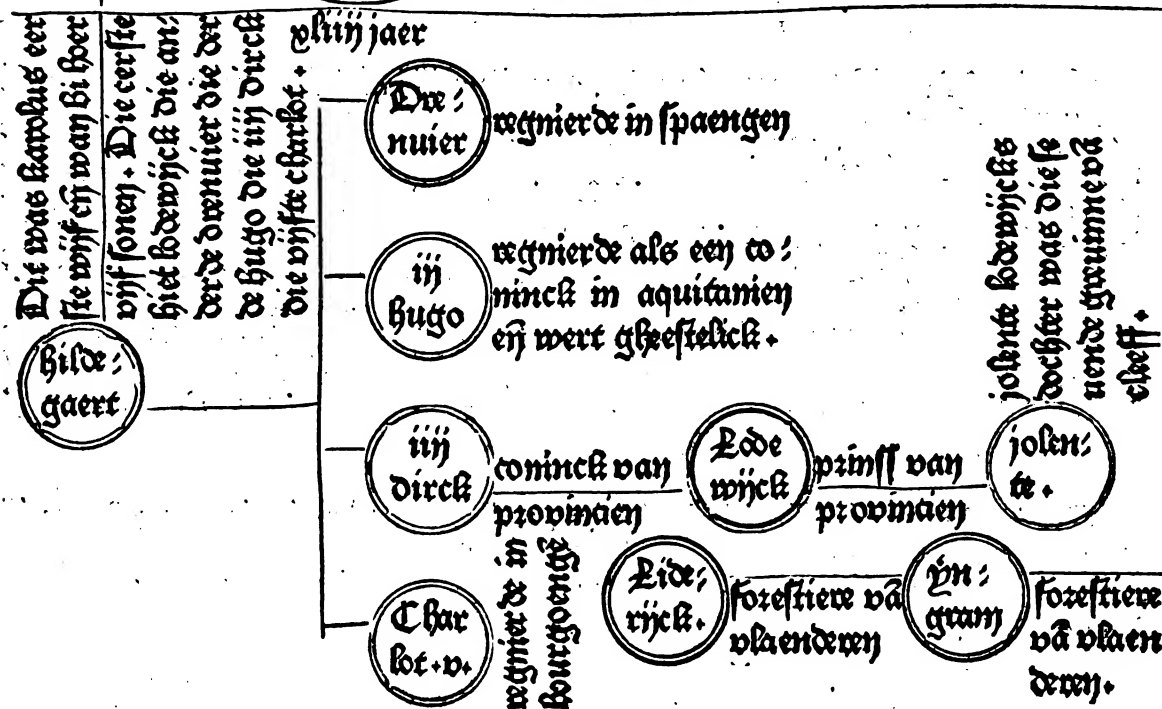 xliiij jaer
Dit was karolus eer
ste wijf eñ wan bi hoer
vijf sonen. Die eerste
hiet lodewijck die an:
derde drenuier die der
de hugo die iiij dirck
die vijfte charlot.
hilde:
gaert
Dre:
nuier
regnierde in spaengen
iij
hugo
regnierde als een co:
ninck in aquitanien
eñ wert gheestelick.
iiij
dirck
coninck van
provincien
Lode
wijck
prinss van
provincien
jolen:
te.
jolente lodewijcks
dochter was die se
uende grauinne vã
cleeff.
Char
lot.v.
regnierde in
bourgoenge
Lide:
rijck.
forestiere vã
vlaenderen
ÿn:
gram
forestiere
vã vlaen
deren.